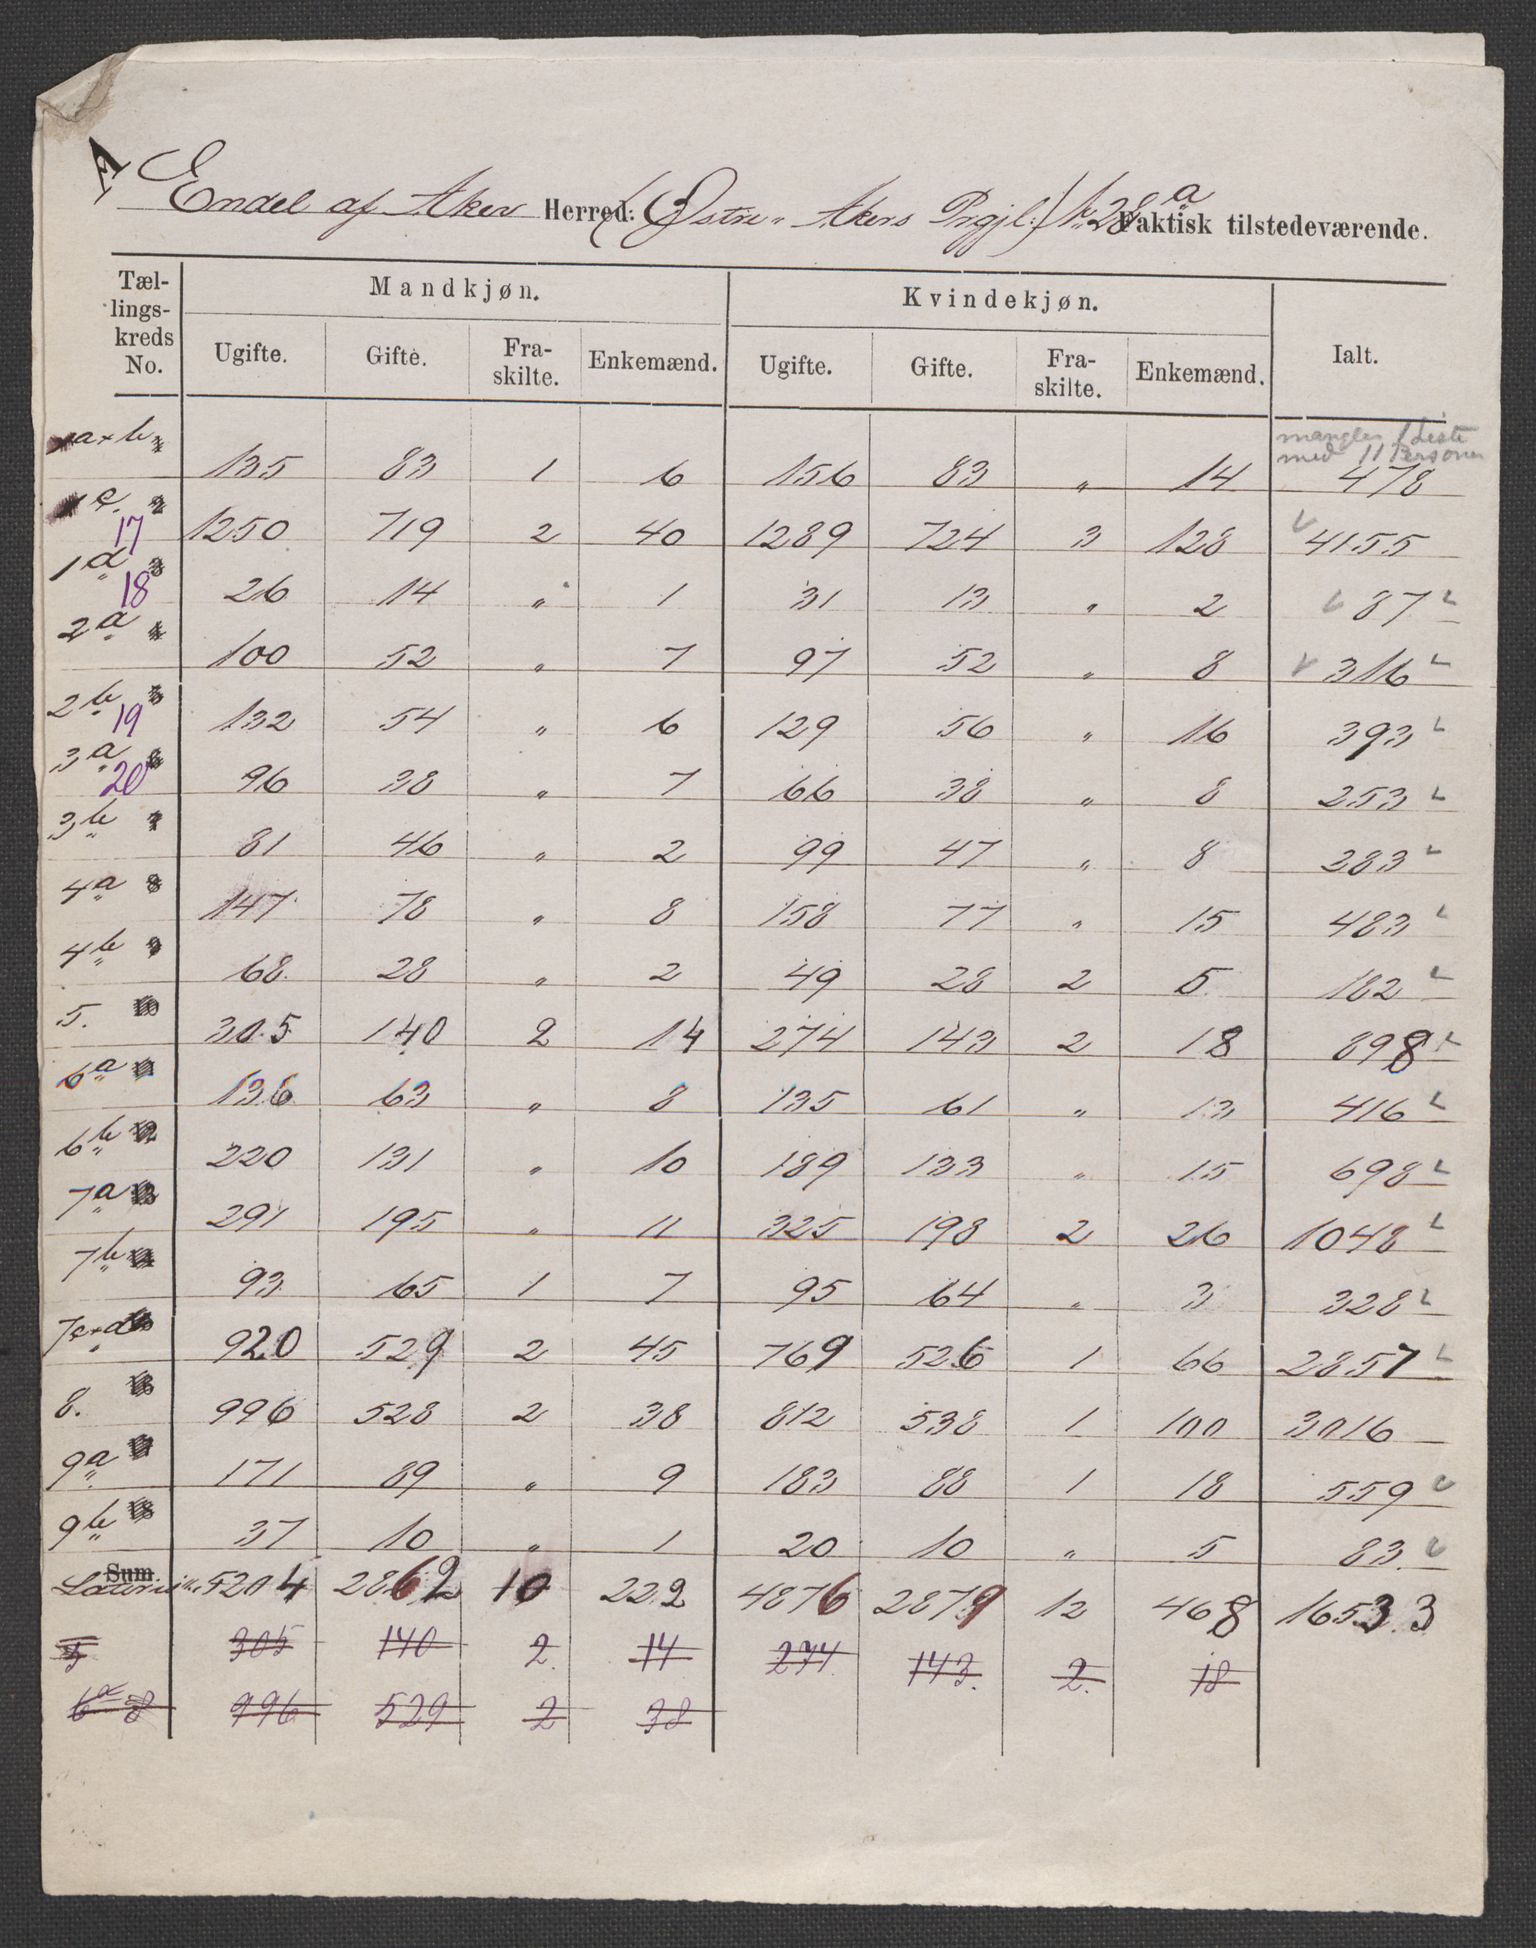 A
Endel af Aker Herred: (Østre Akers Prgjl:) No 28 a Faktisk tilstedeværende.
Tællingskreds No. Mandkjøn. Kvindekjøn. Ialt.
Ugifte. Gifte. Fraskilte. Enkemænd. Ugifte. Gifte. Fraskilte. Enkemænd.
mangler 1 Liste
med 11 Personer
1 a+b 135 83 1 6 156 83 „ 14 478
1 c. 17 1250 719 2 40 1289 724 3 128 4155
1 d 18 26 14 „ 1 31 13 „ 2 87
2 a 100 52 „ 7 97 52 „ 8 316
2 b 19 132 54 „ 6 129 56 „ 16 393
3 a 20 96 38 „ 7 66 38 „ 8 253
3 b 81 46 „ 2 99 47 „ 8 283
4 a 147 78 „ 8 158 77 „ 15 483
4 b 68 28 „ 2 49 28 2 5 182
5. 305 140 2 14 274 143 2 18 898
6 a 136 63 „ 8 135 61 „ 13 416
6 b 220 131 „ 10 189 133 „ 15 698
7 a 291 195 „ 11 325 198 2 26 1048
7 b 93 65 1 7 95 64 „ 3 328
7 c+d 920 529 2 45 769 526 1 66 2857
8. 996 528 2 38 812 538 1 100 3016
9 a 171 89 „ 9 183 88 1 18 559
9 b 37 10 „ 1 20 10 „ 5 83
Sum 5204 2862 10 222 4876 2879 12 468 16533
5 305 140 2 14 274 143 2 18
6 a 8 996 529 2 38